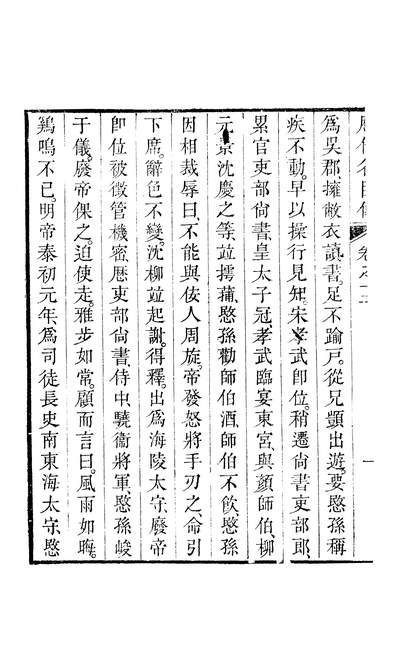 爲吳郡、擁敝衣讀書、足不踰戸。從兄顗出遊、要愍孫稱
疾不動。早以操行見知。宋孝武卽位。稍遷尙書吏部郞、
累官吏部尙書。皇太子冠、孝武臨宴東宮、與顏師伯、柳
元景、沈慶之等、竝摴蒱、愍孫勸師伯酒、師伯不飮、愍孫
因相裁辱曰、不能與佞人周旋。帝發怒將手刃之、命引
下席。辭色不變。沈柳竝起謝。得釋。出爲海陵太守、廢帝
卽位被徵管機密、歷吏部尙書、侍中、驍衞將軍。愍孫峻
于儀。廢帝倮之。迫使走。雅步如常。顧而言曰。風雨如晦。
鷄鳴不已。明帝泰初元年、爲司徒長史南東海太守、愍